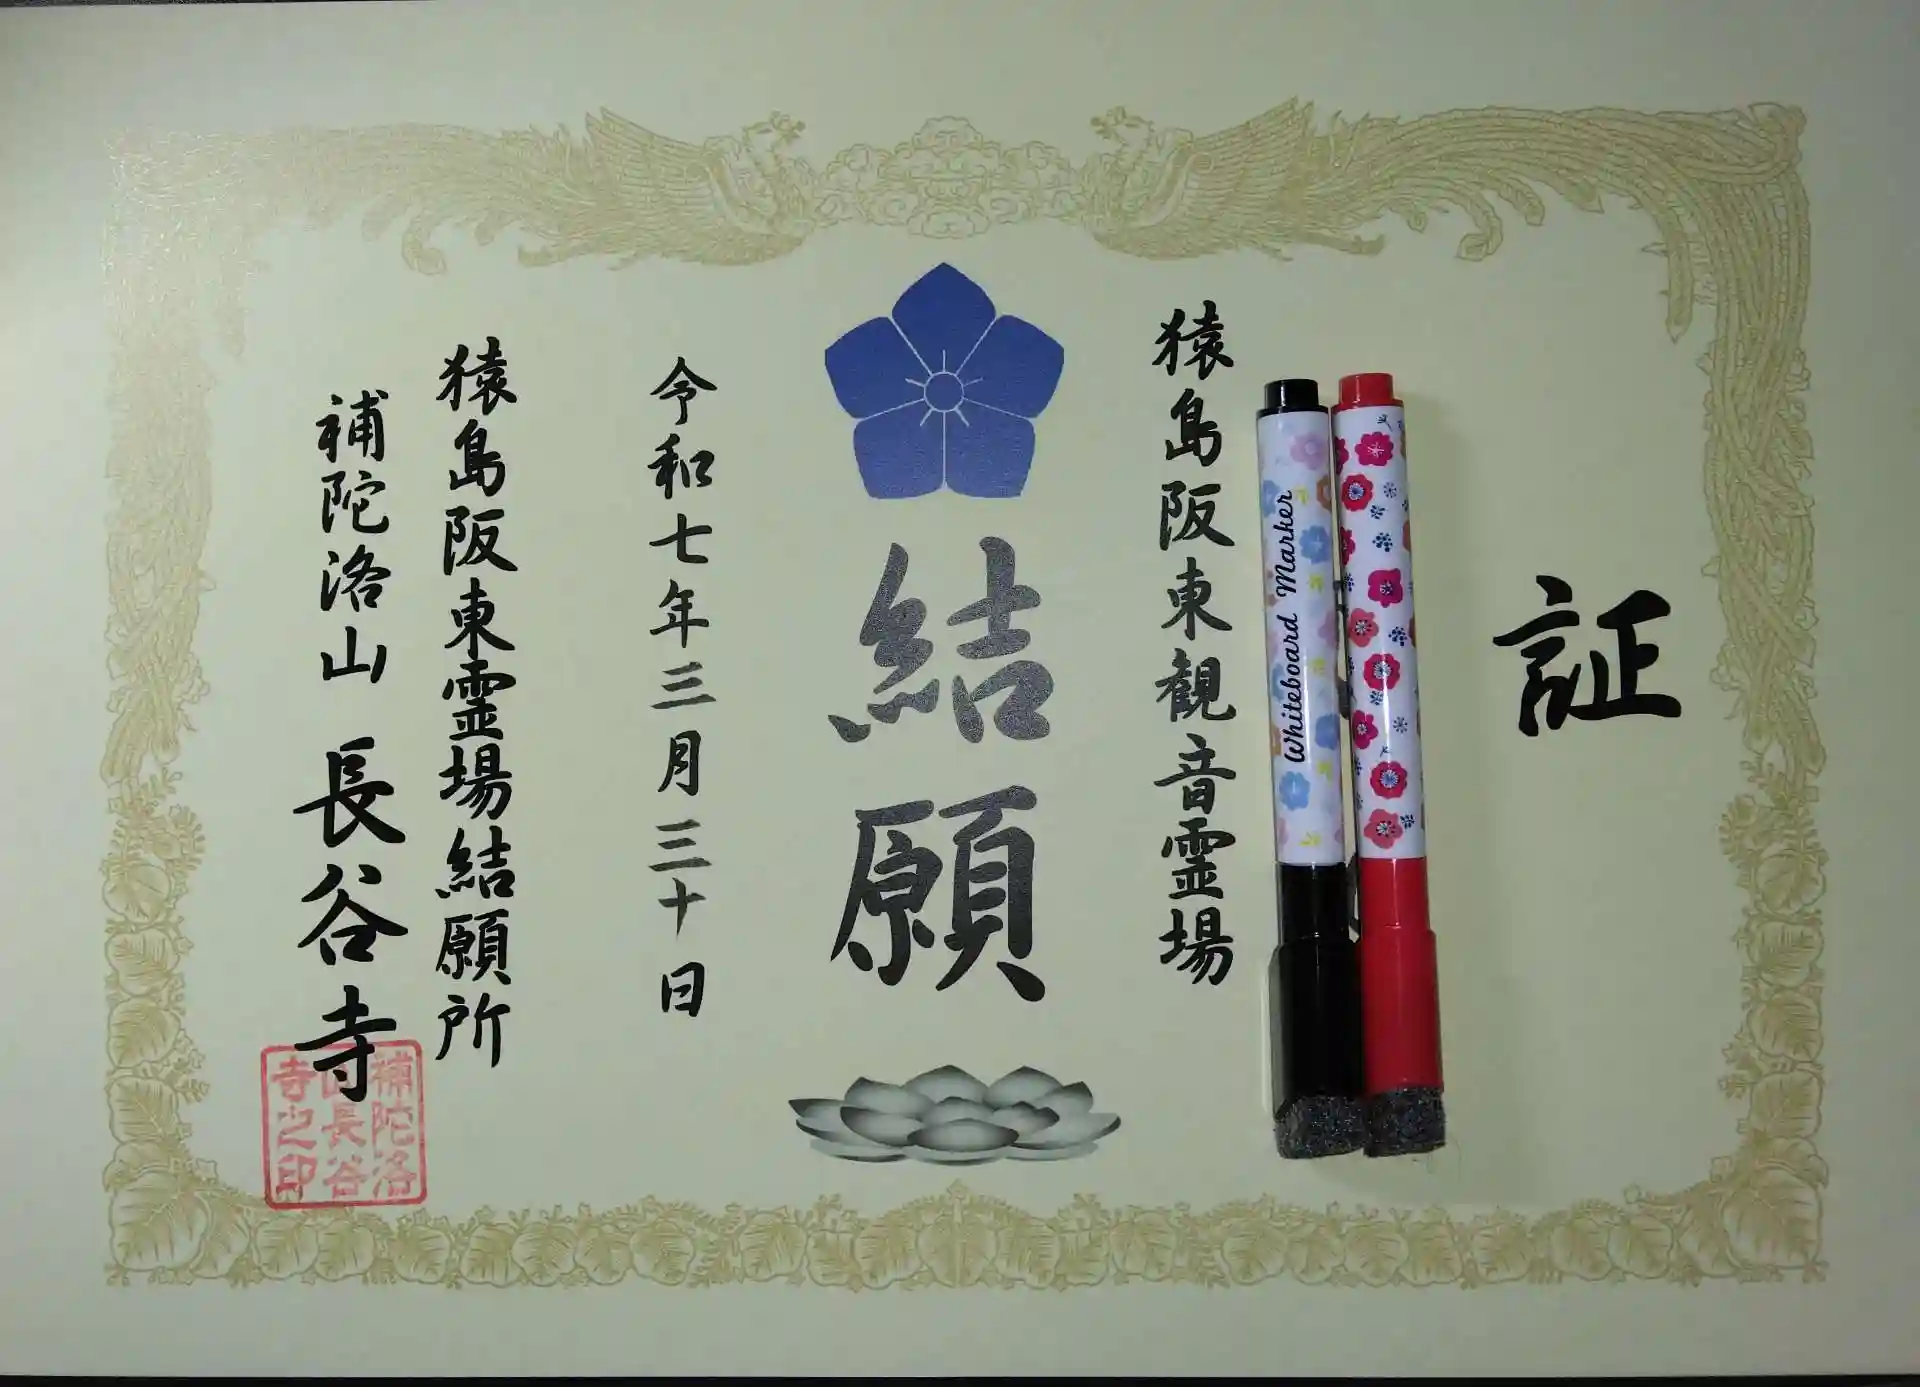 証
Whiteboard Marker
猿島阪東観音霊場
結願
令和七年三月三十日
猿島阪東霊場結願所
補陀洛山 長谷寺
補陀洛
山長谷
寺之印